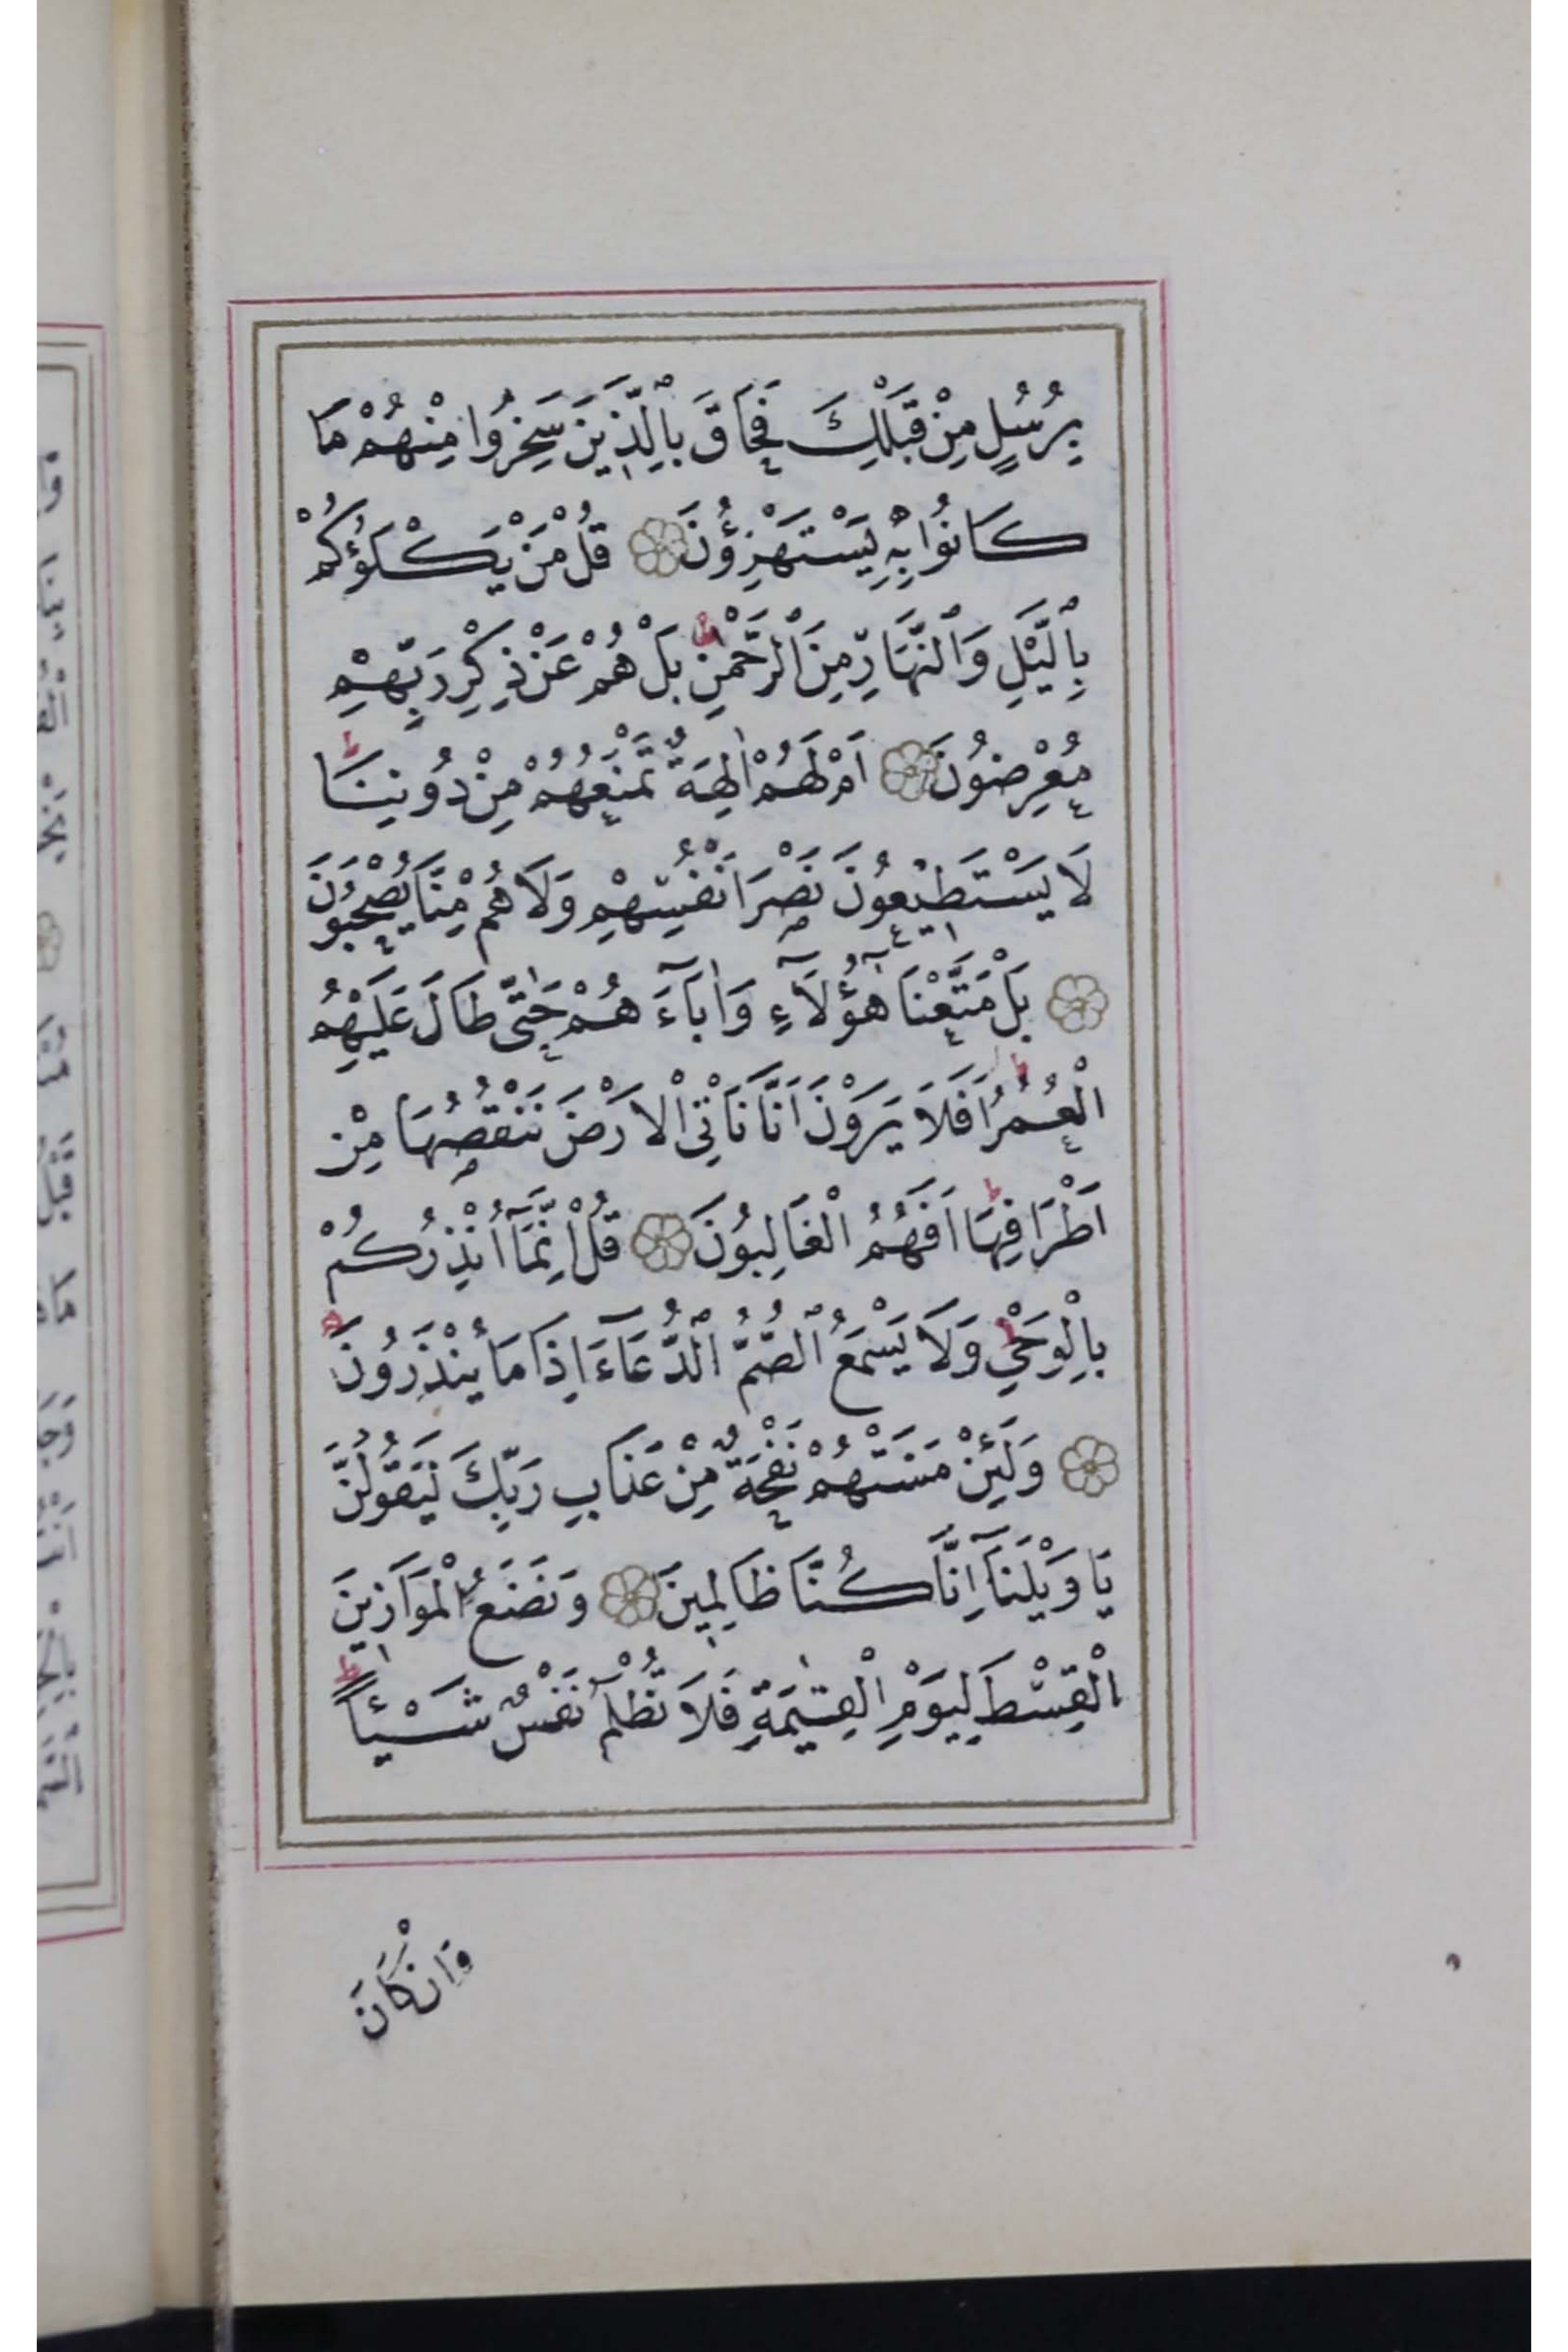 بِرُسُلٍ مِنْ قَبْلِكَ فَحَاقَ بِالَّذِينَ سَخِرُوا مِنْهُمْ مَا
كَانُوا بِهِ يَسْتَهْزِؤُنَ قُلْ مَنْ يَكْلَؤُكُمْ
بِالَّيْلِ وَالنَّهَارِ مِنَ الرَّحْمٰنِ بَلْ هُمْ عَنْ ذِكْرِ رَبِّهِمْ
مُعْرِضُونَ اَمْ لَهُمْ اٰلِهَةٌ تَمْنَعُهُمْ مِنْ دُونِنَا
لَا يَسْتَطِيعُونَ نَصْرَ اَنْفُسِهِمْ وَلَا هُمْ مِنَّا يُصْحَبُونَ
بَلْ مَتَّعْنَا هٰٓؤُلَآءِ وَاٰبَآءَهُمْ حَتّٰى طَالَ عَلَيْهِمُ
الْعُمُرُ اَفَلَا يَرَوْنَ اَنَّا نَاْتِى الْاَرْضَ نَنْقُصُهَا مِنْ
اَطْرَافِهَا اَفَهُمُ الْغَالِبُونَ قُلْ اِنَّمَآ اُنْذِرُكُمْ
بِالْوَحْىِ وَلَا يَسْمَعُ الصُّمُّ الدُّعَآءَ اِذَا مَا يُنْذَرُونَ
وَلَئِنْ مَسَّتْهُمْ نَفْحَةٌ مِنْ عَذَابِ رَبِّكَ لَيَقُولُنَّ
يَا وَيْلَنَآ اِنَّا كُنَّا ظَالِمِينَ وَنَضَعُ الْمَوَازِينَ
الْقِسْطَ لِيَوْمِ الْقِيٰمَةِ فَلَا تُظْلَمُ نَفْسٌ شَيْئًا
وَاِنْ كَانَ